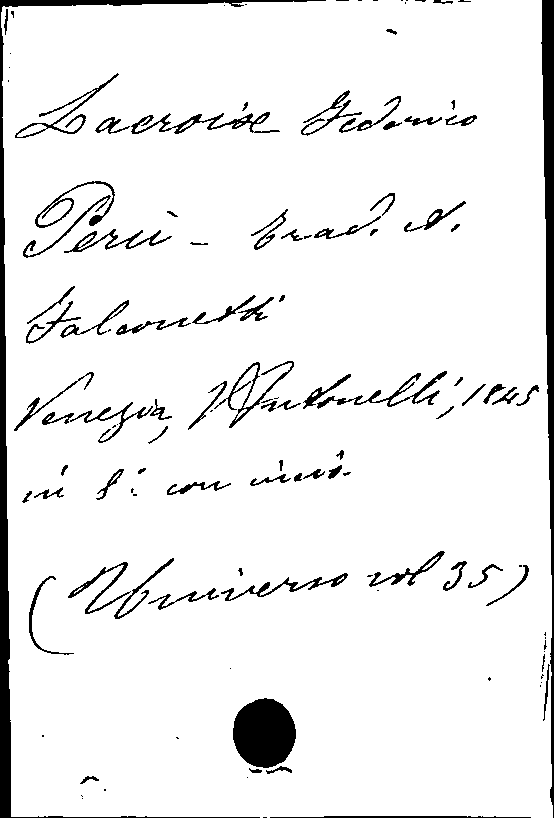 Lacroix Federico
Perù - trad. A.
Falconetti
Venezia, Antonelli, 1845
in 8.° con incis.
(Universo vol 35)